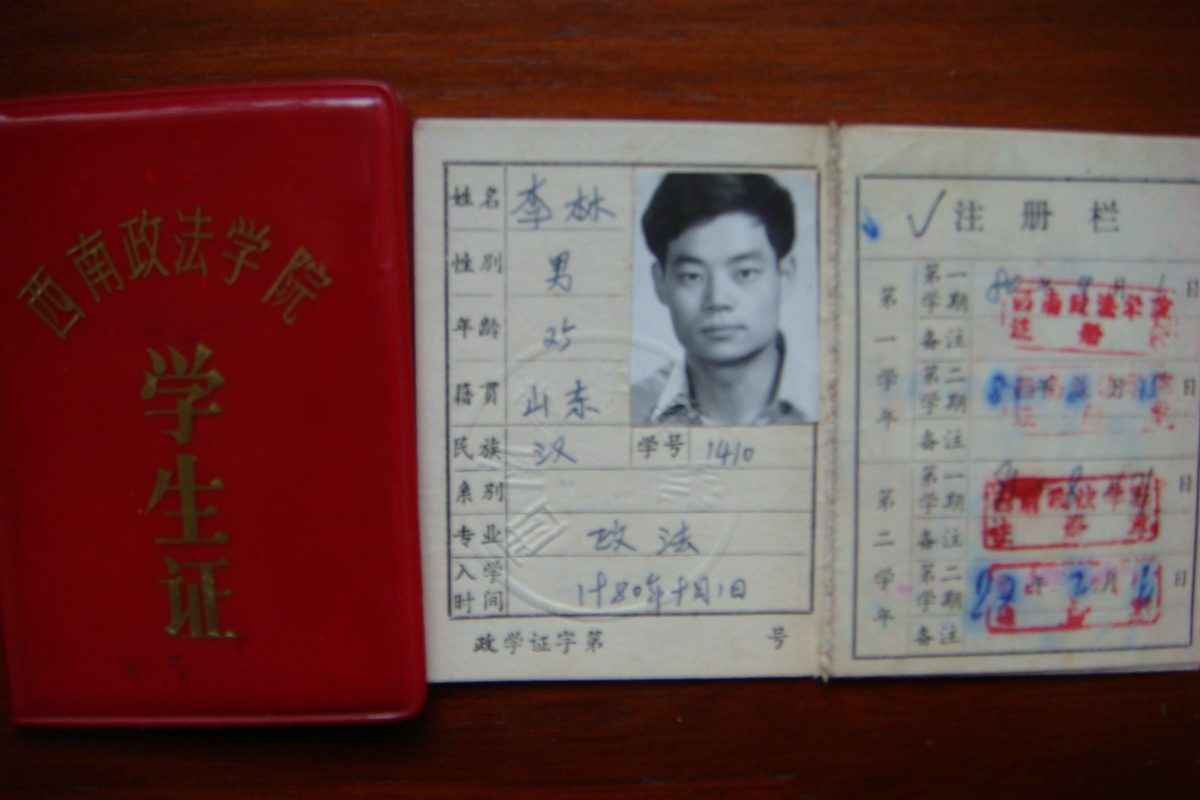 西南政法学院
学生证
姓名 李林
性别 男
年龄 25
籍贯 山东
民族 汉 学号 1410
系别
专业 政法
入学时间 1980年十月1日
政学证字第 号
注册栏
第一学年
第一学期 日
西南政法学院
备注
第二学期 日
备注
第二学年
第一学期 日
备注
第二学期 年2月 日
备注